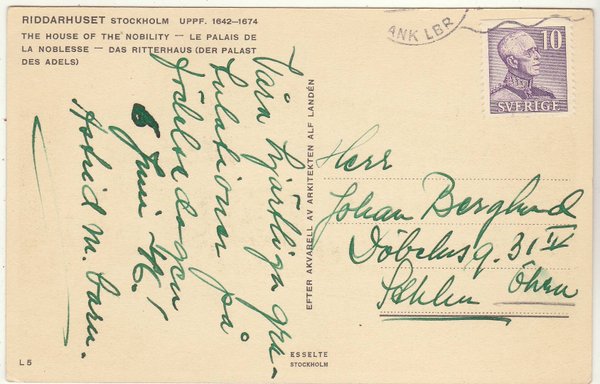 RIDDARHUSET STOCKHOLM UPPF. 1642–1674
THE HOUSE OF THE NOBILITY — LE PALAIS DE
LA NOBLESSE — DAS RITTERHAUS (DER PALAST
DES ADELS)
Våra hjärtliga gra-
tulationer på
födelsedagen
5 Juni 41!
Astrid m. barn.
EFTER AKVARELL AV ARKITEKTEN ALF LANDÉN
ANK LBR
10
SVERIGE
Herr
Johan Berglund
Döbelnsg. 31 IV
Sthlm Öhrn
ESSELTE
STOCKHOLM
L 5